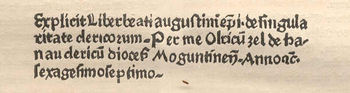 Explicit Liber beati augustini ep̄i. de singula
ritate clericorum. Per me Olricū zel de ha-
nau clericū dioceš Moguntineñ. Anno ꝛc̄.
sexagesimoseptimo.